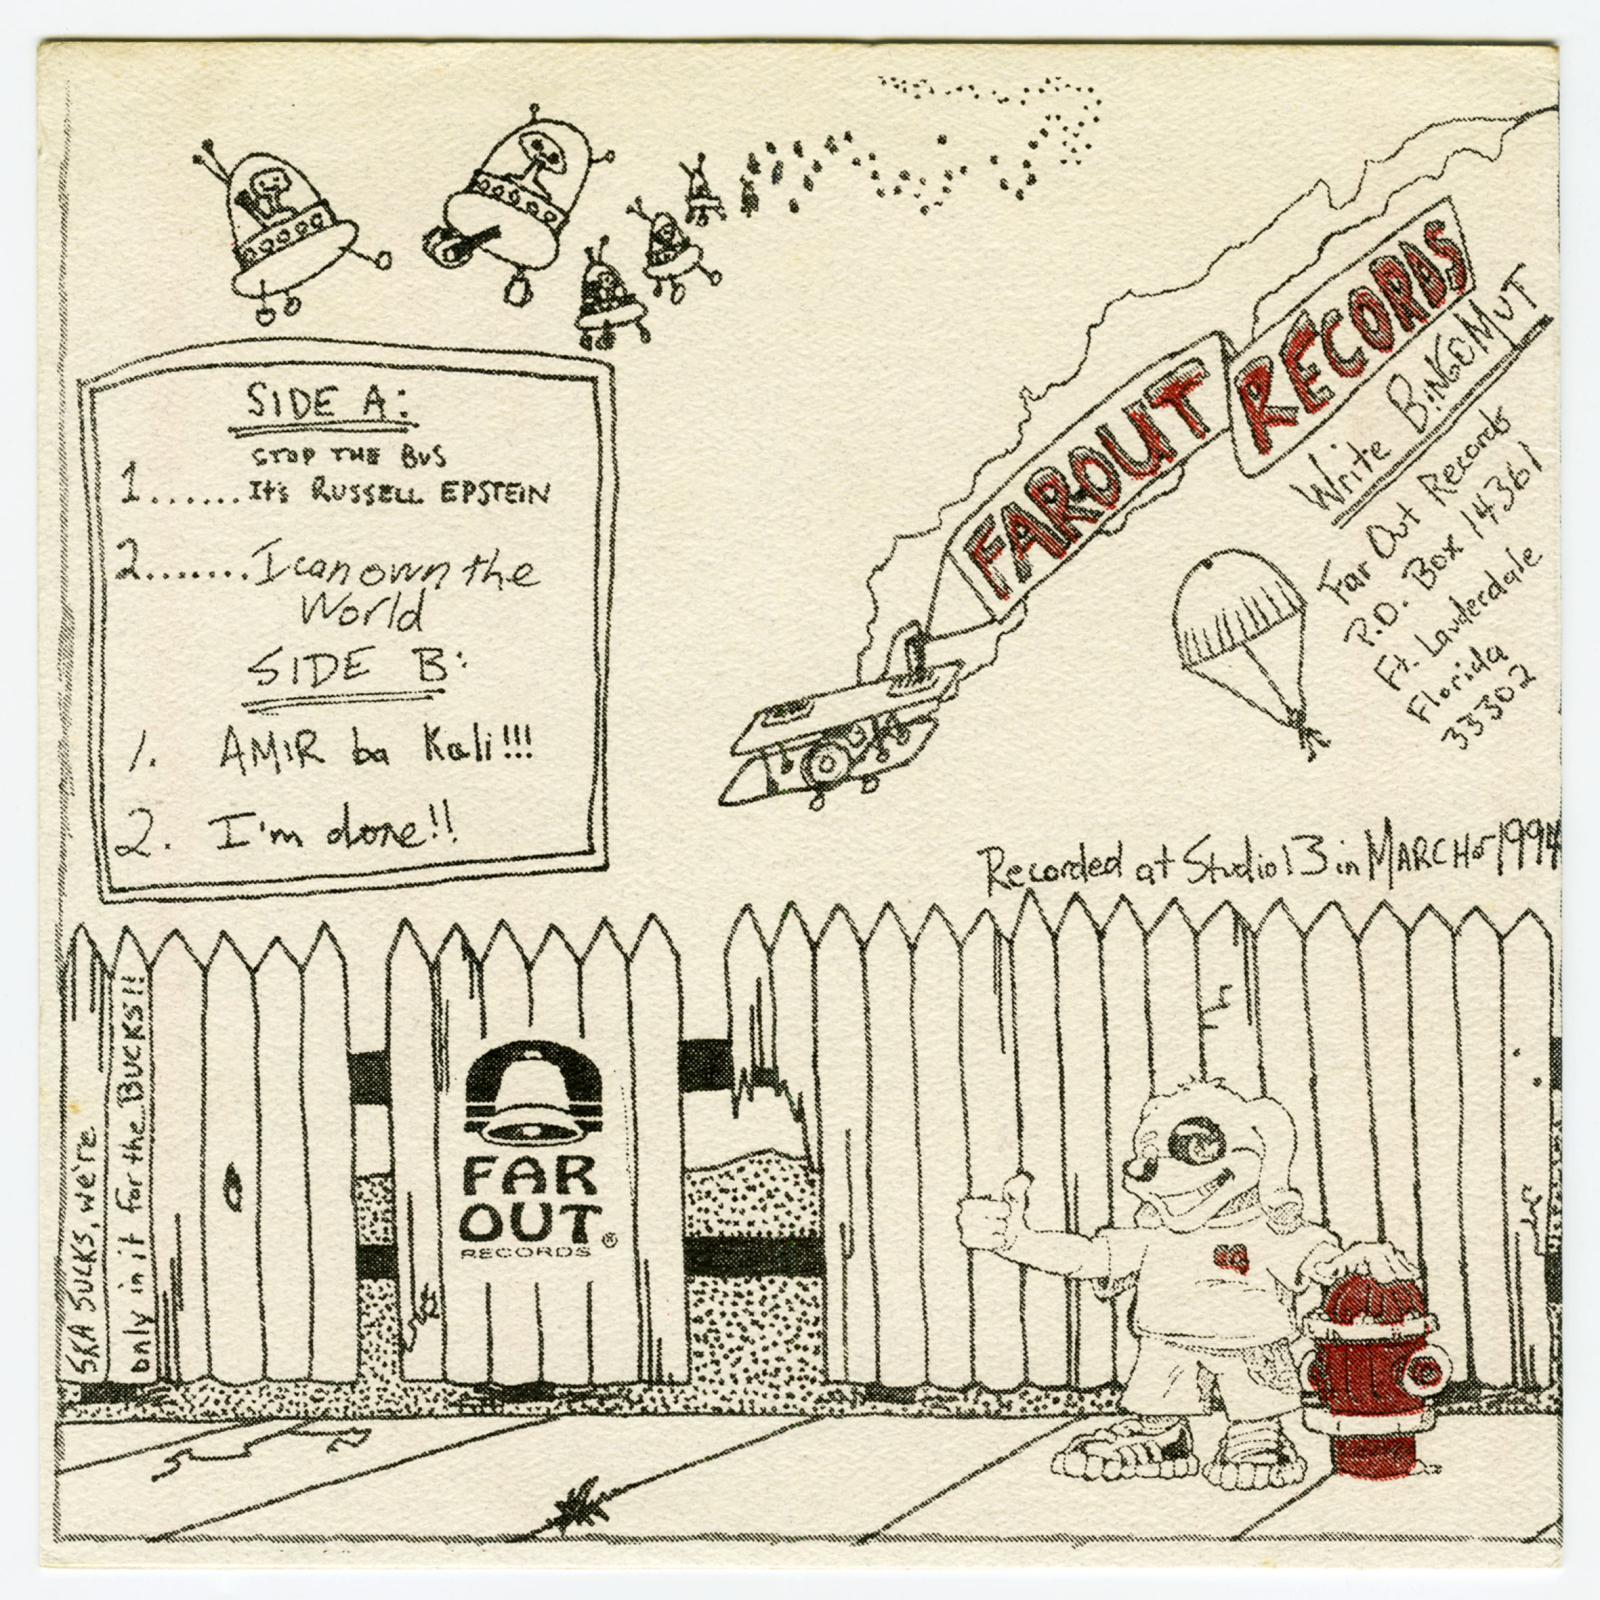 SIDE A:
STOP THE BUS
1.......It's RUSSELL EPSTEIN
2.......I can own the
World
SIDE B:
1. AMIR ba Kali!!!
2. I'm done!!
FAROUT RECORDS
Write BiNGOMUT
Far Out Records
P.O. Box 14361
Ft. Lauderdale
Florida
33302
Recorded at Studio 13 in MARCH of 1994
SKA SUCKS, we're
only in it for the BUCKS!!
FAR
OUT®
RECORDS